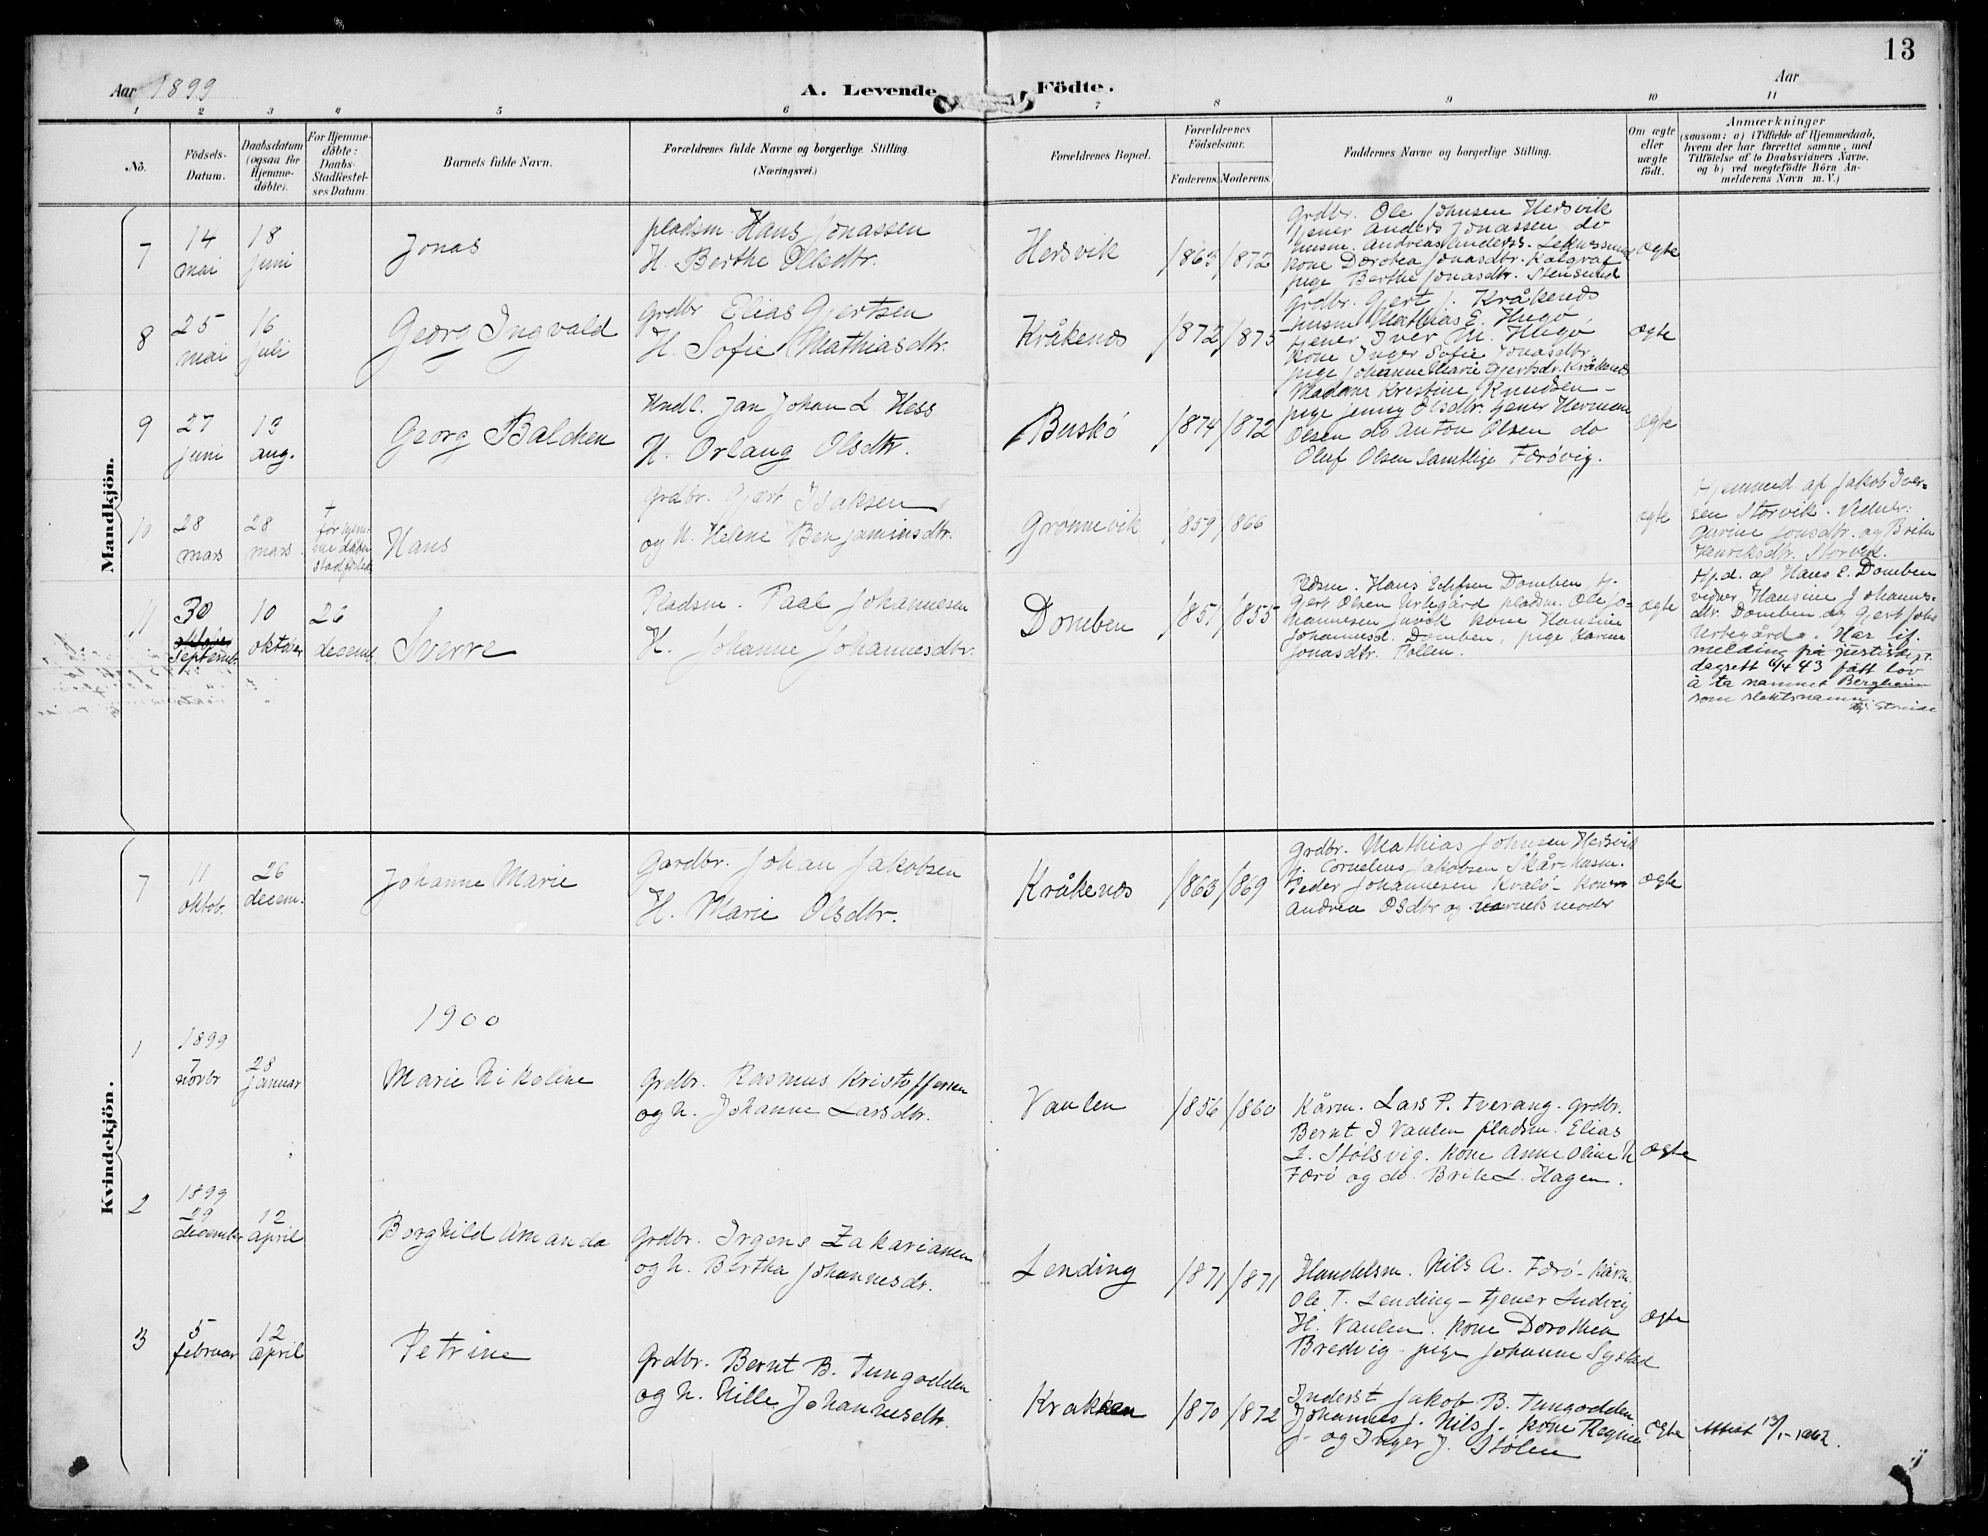 13
Aar 1899
A. Levende Födte.
Aar
1 2 3 4 5 6 7 8 9 10 11
No.
Födsels-Datum.
Daabsdatum (ogsaa for Hjemme-døbte).
For Hjemme-døbte: Daabs-Stadfæstel-ses Datum.
Barnets fulde Navn.
Forældrenes fulde Navne og borgerlige Stilling
(Næringsvei.)
Forældrenes Bopæl.
Forældrenes Födselsaar.
Faderens. Moderens.
Faddernes Navne og borgerlige Stilling.
Om ægte eller uægte födt.
Anmærkninger
(saasom: a) i Tilfælde af Hjemmedaab,
hvem der har forrettet samme, med
Tilföielse af to Daabsvidners Navne.
og b) ved uægtefödte Börn An-
melderens Navn m. V.)
Mandkjön.
7
14 mai
18 juni
Jonas
pladsm. Hans Jonassen
H. Berthe Olsdtr.
Hersvik
1863 1872
Grdbr. Ole Johnsen Hersvik
tjener Anders Jonassen do
husm. Andreas Anders.
kone Dorotea Jonasdtr. Kalgraf
pige Berthe Jonasdtr. Stensund
ægte
8
25 mai
16 juli
Georg Ingvald
Grdbr Elias Gjertsen
H. Sofie Mathiasdtr.
Kråkenæs
1872 1875
Grdbr. Gjert J. Kråkenæs
husm Mathias E. Hugø
tjener Iver M. Hugø
kone Inger Sofie Jonasdtr.
pige Johanne Marie Gjertsdr. Kråkenæs
ægte
9
27 juni
13 aug.
Georg Balchen
Hndl. Jan Johan L. Hess
H. Orlaug Olsdtr.
Buskø
1874 1872
Madam Krestine Knudsen -
pige Jenny Olsdtr. tjener Herman
Olsen do Anton Olsen do
Oluf Olsen samtlige Færøvig.
ægte
10
28 mars
28 mars
Hans
Grdbr. Gjert Isaksen
og H. Helene Benjaminsdtr.
Grønnevik
1859 1866
ægte
Hjemmed af Jakob Iver-
sen Storvik. Vidner:
Gurine Jonsdtr. og Brite
Henriksdtr. Storvik.
11
30 septemb.
10 oktober
26 decemb.
Sverre
Pladsm. Paal Johannesen
H. Johanne Johannesdtr.
Domben
1851 1855
Pldsm. Hans Domben, tj.
Gjert Olsen Urtegård pladsm. Ole Jo-
hannesen kone Hansine
Johannesd. Domben, pige Karine
Jonasdtr. Pollen.
ægte
Hj.d. af Hans E. Domben
vidner Hansine Johannes-
dtr. Domben og Gjert Johs
Urtegård. Har iflg.
melding frå justisdept.
dagsett 6/4 43 fått lov
å ta namnet Bergheim
som slektsnamn.
Kvindekjön.
7
11 oktob.
26 decem.
Johanne Marie
Gardbr. Johan Jakobsen
H. Marie Olsdtr.
Kråkenæs
1863 1869
Grdbr. Mathias Johnsen Hersvik
tj. Cornelius Jakobsen Skår-husm.
Peder Johannesen Kvalø- konen
Andrea Olsdtr og barnets moder
ægte
1900
1
1899
7 novbr
28 januar
Marie Nikoline
Grdbr. Rasmus Kristoffersen
og h. Johanne Larsdtr.
Vaulen
1856 1860
Kårm. Lars P. Tverang. Grdbr.
Bernt I Vaulen pladsm. Elias
L. Stølsvig. kone Anne Oline H
Færø og do. Brite L. Hagen.
ægte
2
1899
29 december
12 april
Borghild Amanda
Grdbr. Irgens Zakariasen
og h. Bertha Johannesdr.
Lending
1871 1871
Handelsm. Nils A. Færø - Kårm.
Ole T. Lending - tjener Ludvig
H. Vaulen. kone Dorothea
Bredvig - pige Johanne Systad
ægte
3
5 februar
12 april
Petrine
Grdbr. Bernt B. Tungodden
og h. Nille Johannesdtr.
Krakken
1870 1872
Inderst Jakob B. Tungodden
Johannes J. Nils J. kone Regine
J. og Inger J. Stølen
ægte
Attest 13/1-1962.